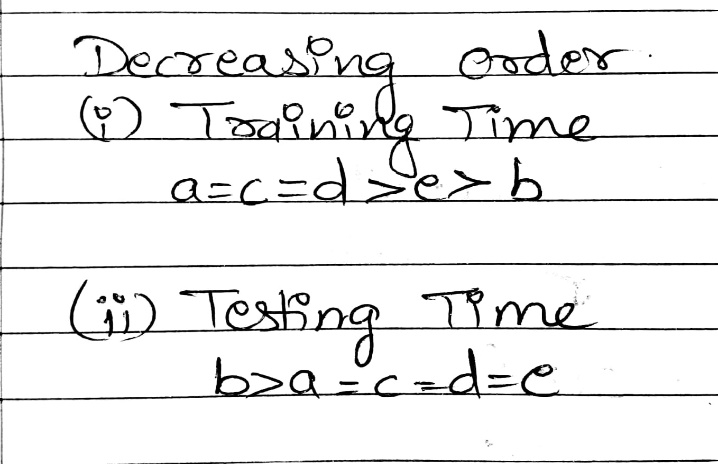 Decreasing order.
(i) Training Time
a=c=d>e>b
(ii) Testing Time
b>a=c=d=e